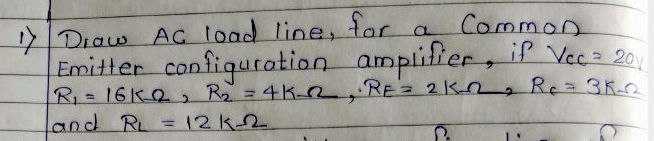 1) Draw AC load line, for a Common
Emitter configuration amplifier, if Vcc = 20V
R1 = 16KΩ, R2 = 4KΩ, RE = 2KΩ, RC = 3KΩ
and RL = 12KΩ